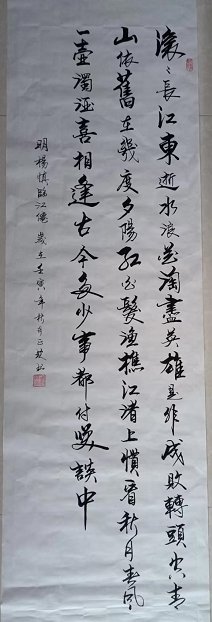 滾〻長江東逝水浪花淘盡英雄是非成敗轉頭空青
山依舊在幾度夕陽紅白髮漁樵江渚上慣看秋月春風
一壺濁酒喜相逢古今多少事都付笑談中
明楊慎臨江僊 歲在壬寅年秋月